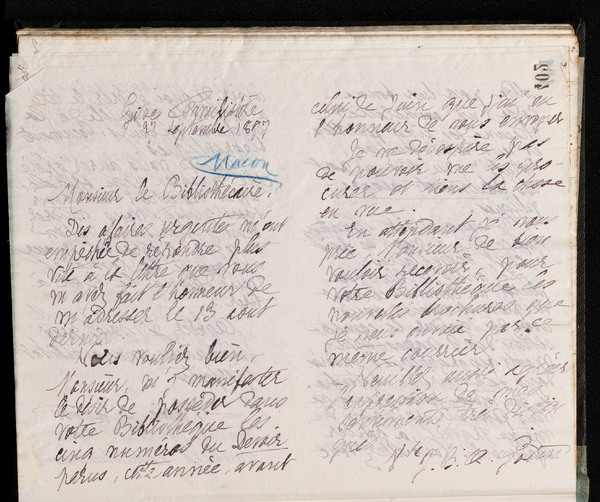 Guise Familistère
27 septembre 1887
Macon
Monsieur le Bibliothécaire,
Des affaires urgentes m'ont
empêchée de répondre plus
vite à la lettre que vous
m'avez fait l'honneur de
m'adresser le 13 août
dernier.
Vous vouliez bien,
Monsieur, m'y manifester
le désir de posséder dans
votre Bibliothèque les
cinq numéros du Devoir
parus, cette année, avant
205
celui de Juin que j'ai eu
l'honneur de vous envoyer
Je ne désespère pas
de pouvoir me les pro-
curer et tiens la chose
en vue.
En attendant je vous
prie Monsieur de bien
vouloir recevoir, pour
votre Bibliothèque les
nouvelles brochures que
je vous envoie par ce
même courrier
Veuillez aussi agréer
l'expression de mes
sentiments très distin
gués